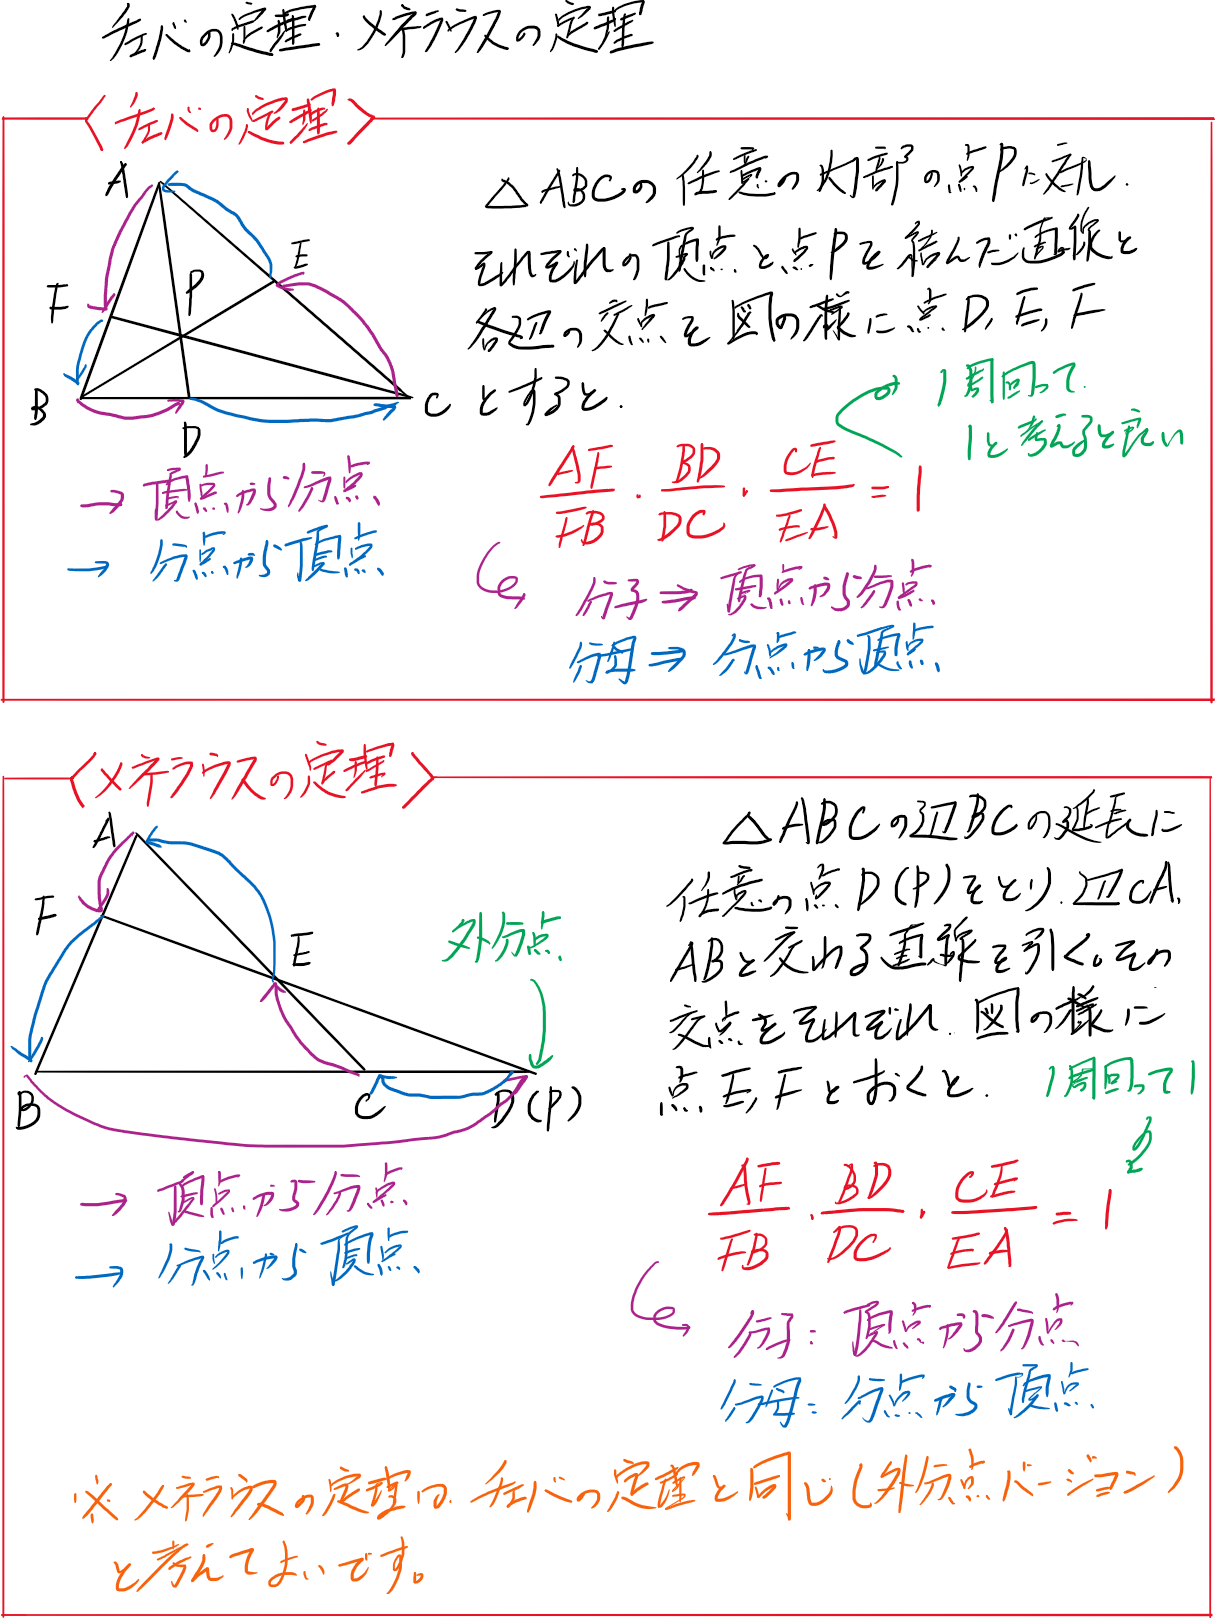 チェバの定理・メネラウスの定理
〈チェバの定理〉
A
E
F
P
B
D
C
→ 頂点から分点
→ 分点から頂点
△ABCの任意の内部の点Pに対し、
それぞれの頂点と点Pを結んだ直線と
各辺の交点を図の様に点D, E, F
とすると、
1周回って
1と考えると良い
AF/FB・BD/DC・CE/EA=1
分子⇒頂点から分点
分母⇒分点から頂点
〈メネラウスの定理〉
A
F
E
外分点
B
C
D(P)
→ 頂点から分点
→ 分点から頂点
△ABCの辺BCの延長に
任意の点D(P)をとり、辺CA,
ABと交わる直線を引く。その
交点をそれぞれ、図の様に
点E, Fとおくと、
1周回って1
AF/FB・BD/DC・CE/EA=1
分子:頂点から分点
分母:分点から頂点
※メネラウスの定理は、チェバの定理と同じ(外分点バージョン)
と考えてよいです。